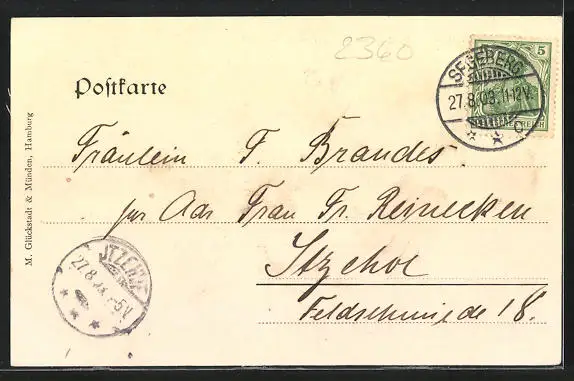 2360
5
SEGEBERG
27.8.03.11-12V.
C
Poſtkarte
M. Glückstadt & Münden, Hamburg
Fräulein F. Brandes
pr Adr Frau Fr. Reinecken
Itzehoe
Feldschmiede 18.
ITZEHOE
27.8
5V